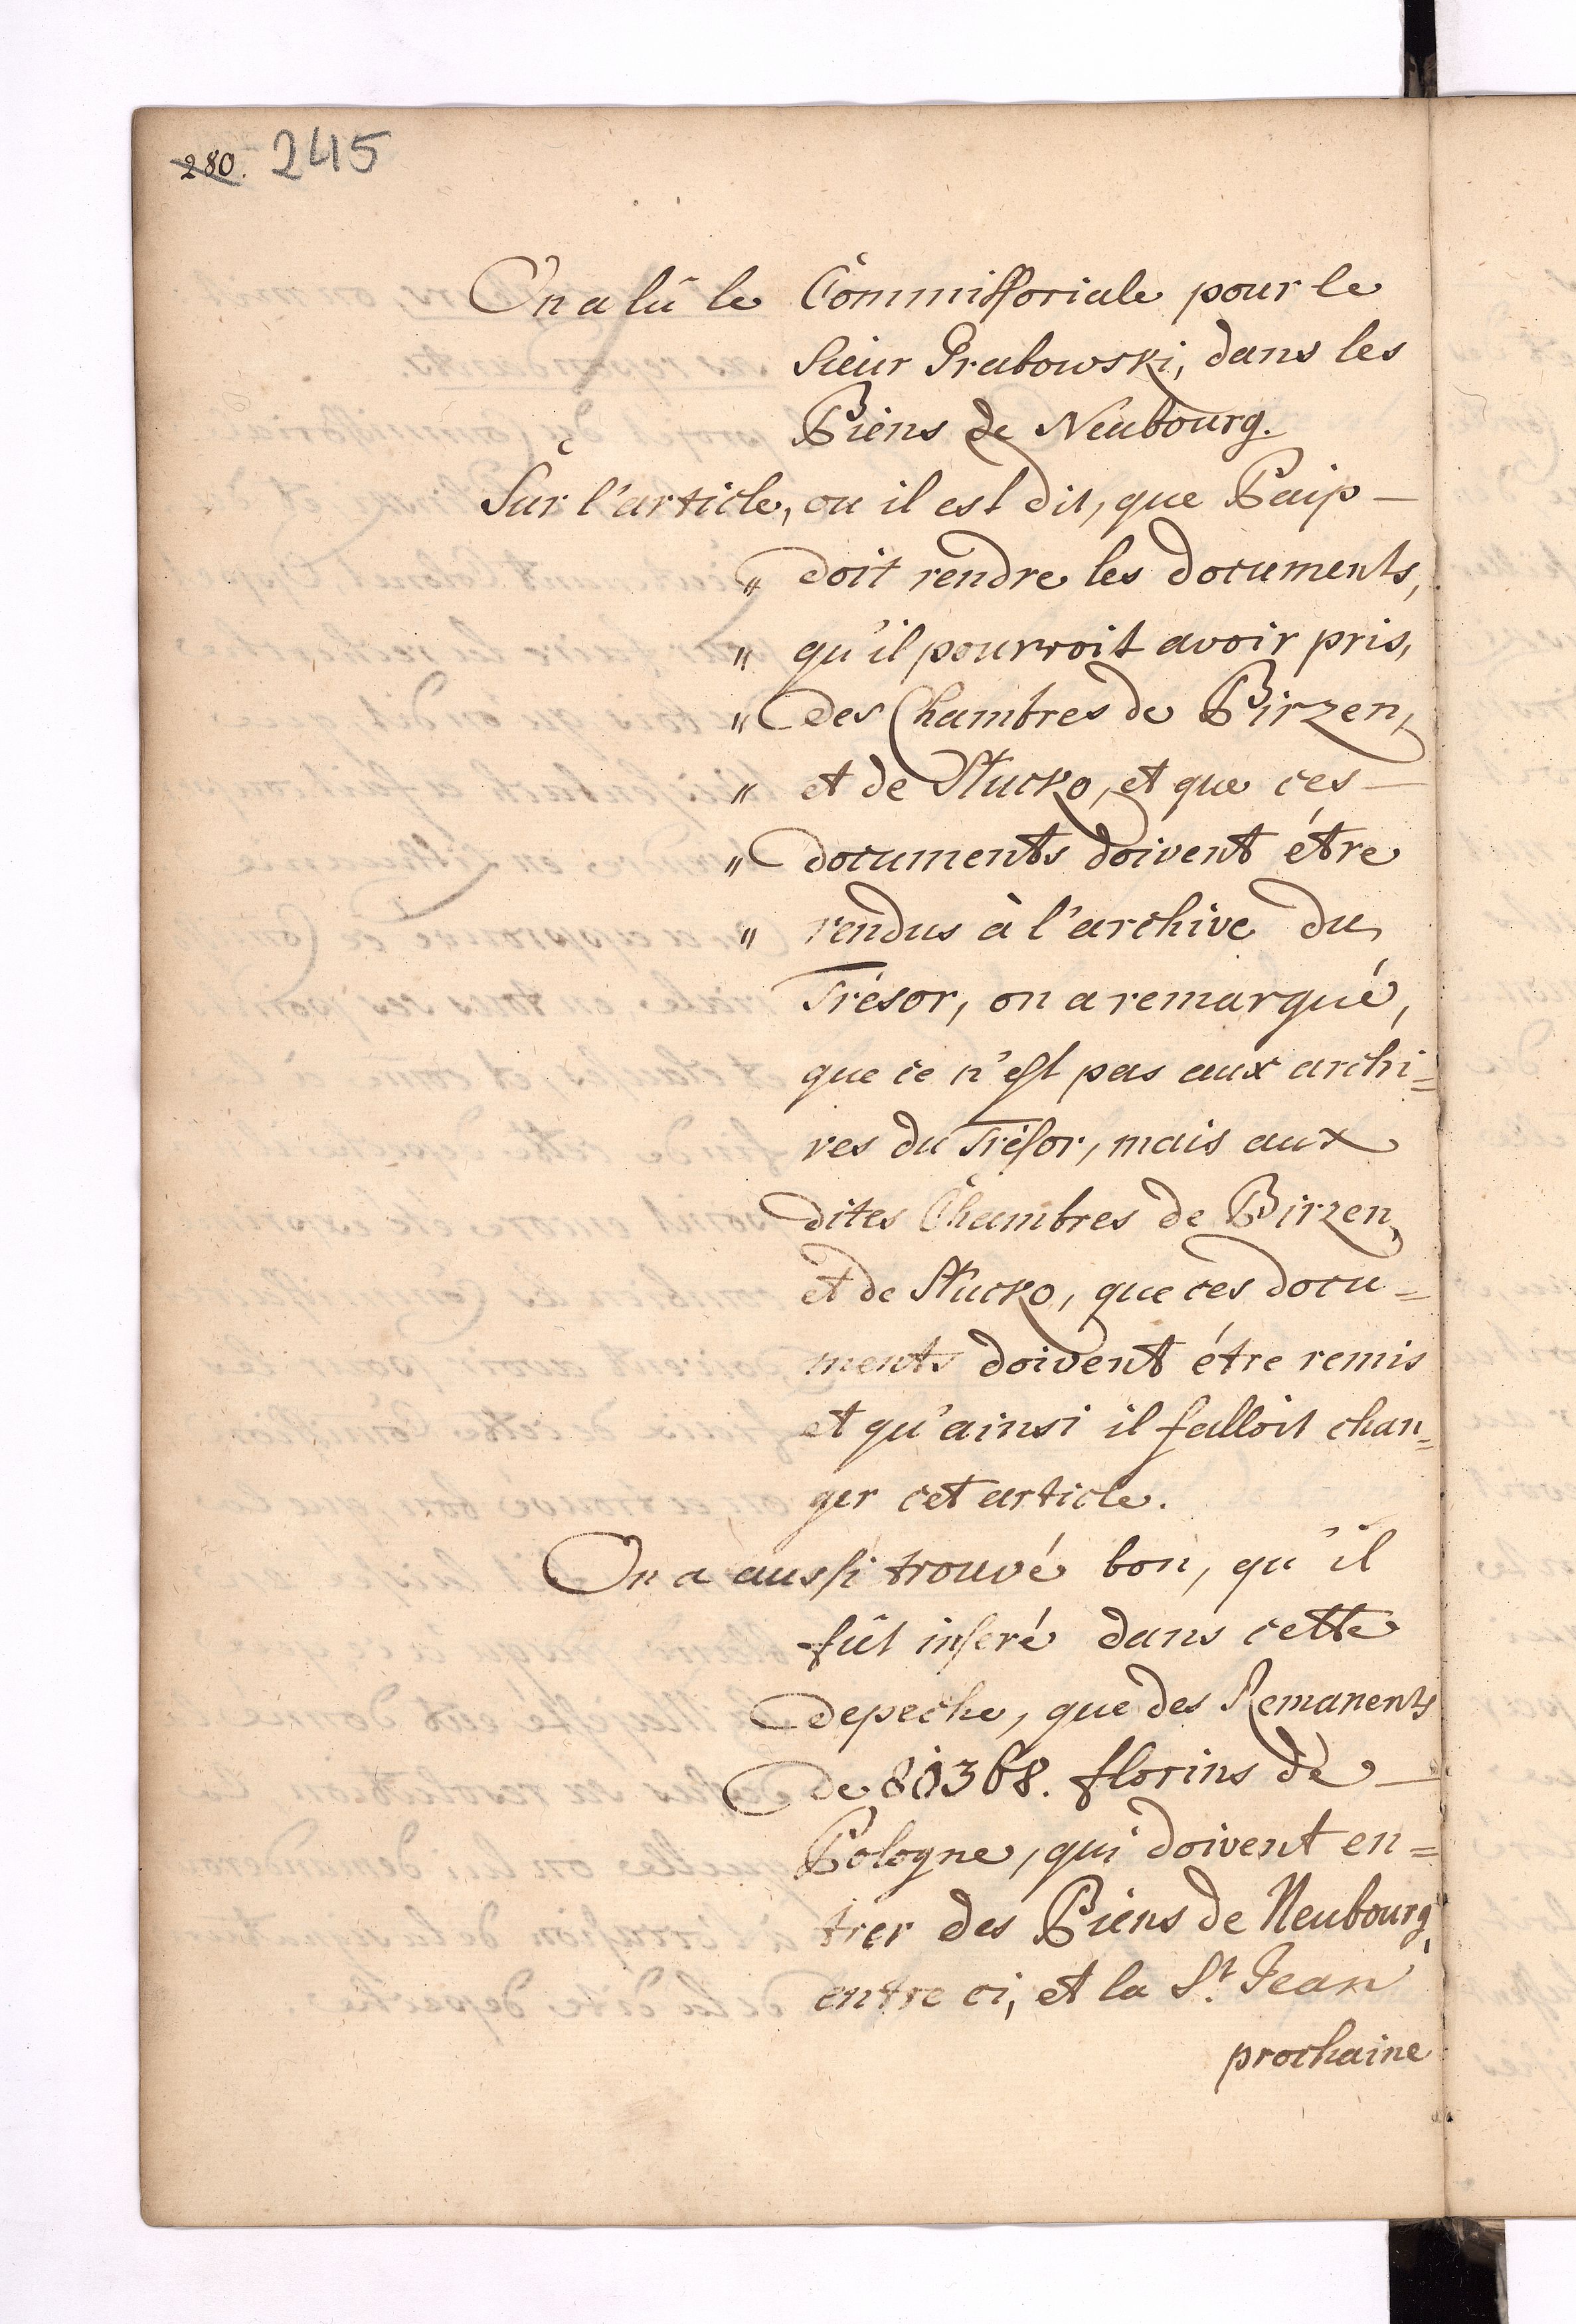 280. 245
On a lû le Commissoriale pour le
Sieur Grabowski, dans les
Biens de Neubourg.
Sur l'article, ou il est dit, que Paip —
" doit rendre les documents,
" qu'il pourroit avoir pris,
" des Chambres de Birzen,
" et de Slucko, et que ces —
" documents doivent étre
" rendus à l'archive du
Trésor, on a remarqué,
que ce n'est pas aux archi=
ves du Trésor, mais aux
dites Chambres de Birzen,
et de Slucko, que ces docu=
ments doivent étre remis
et qu'ainsi il falloit chan=
ger cet article.
On a aussi trouvé bon, qu'il
fût inseré dans cette
depeche, que des Remanents
de florins de —
Pologne, qui doivent en=
trer des Biens de Neubourg,
entre ci, et la St. Jean
prochaine